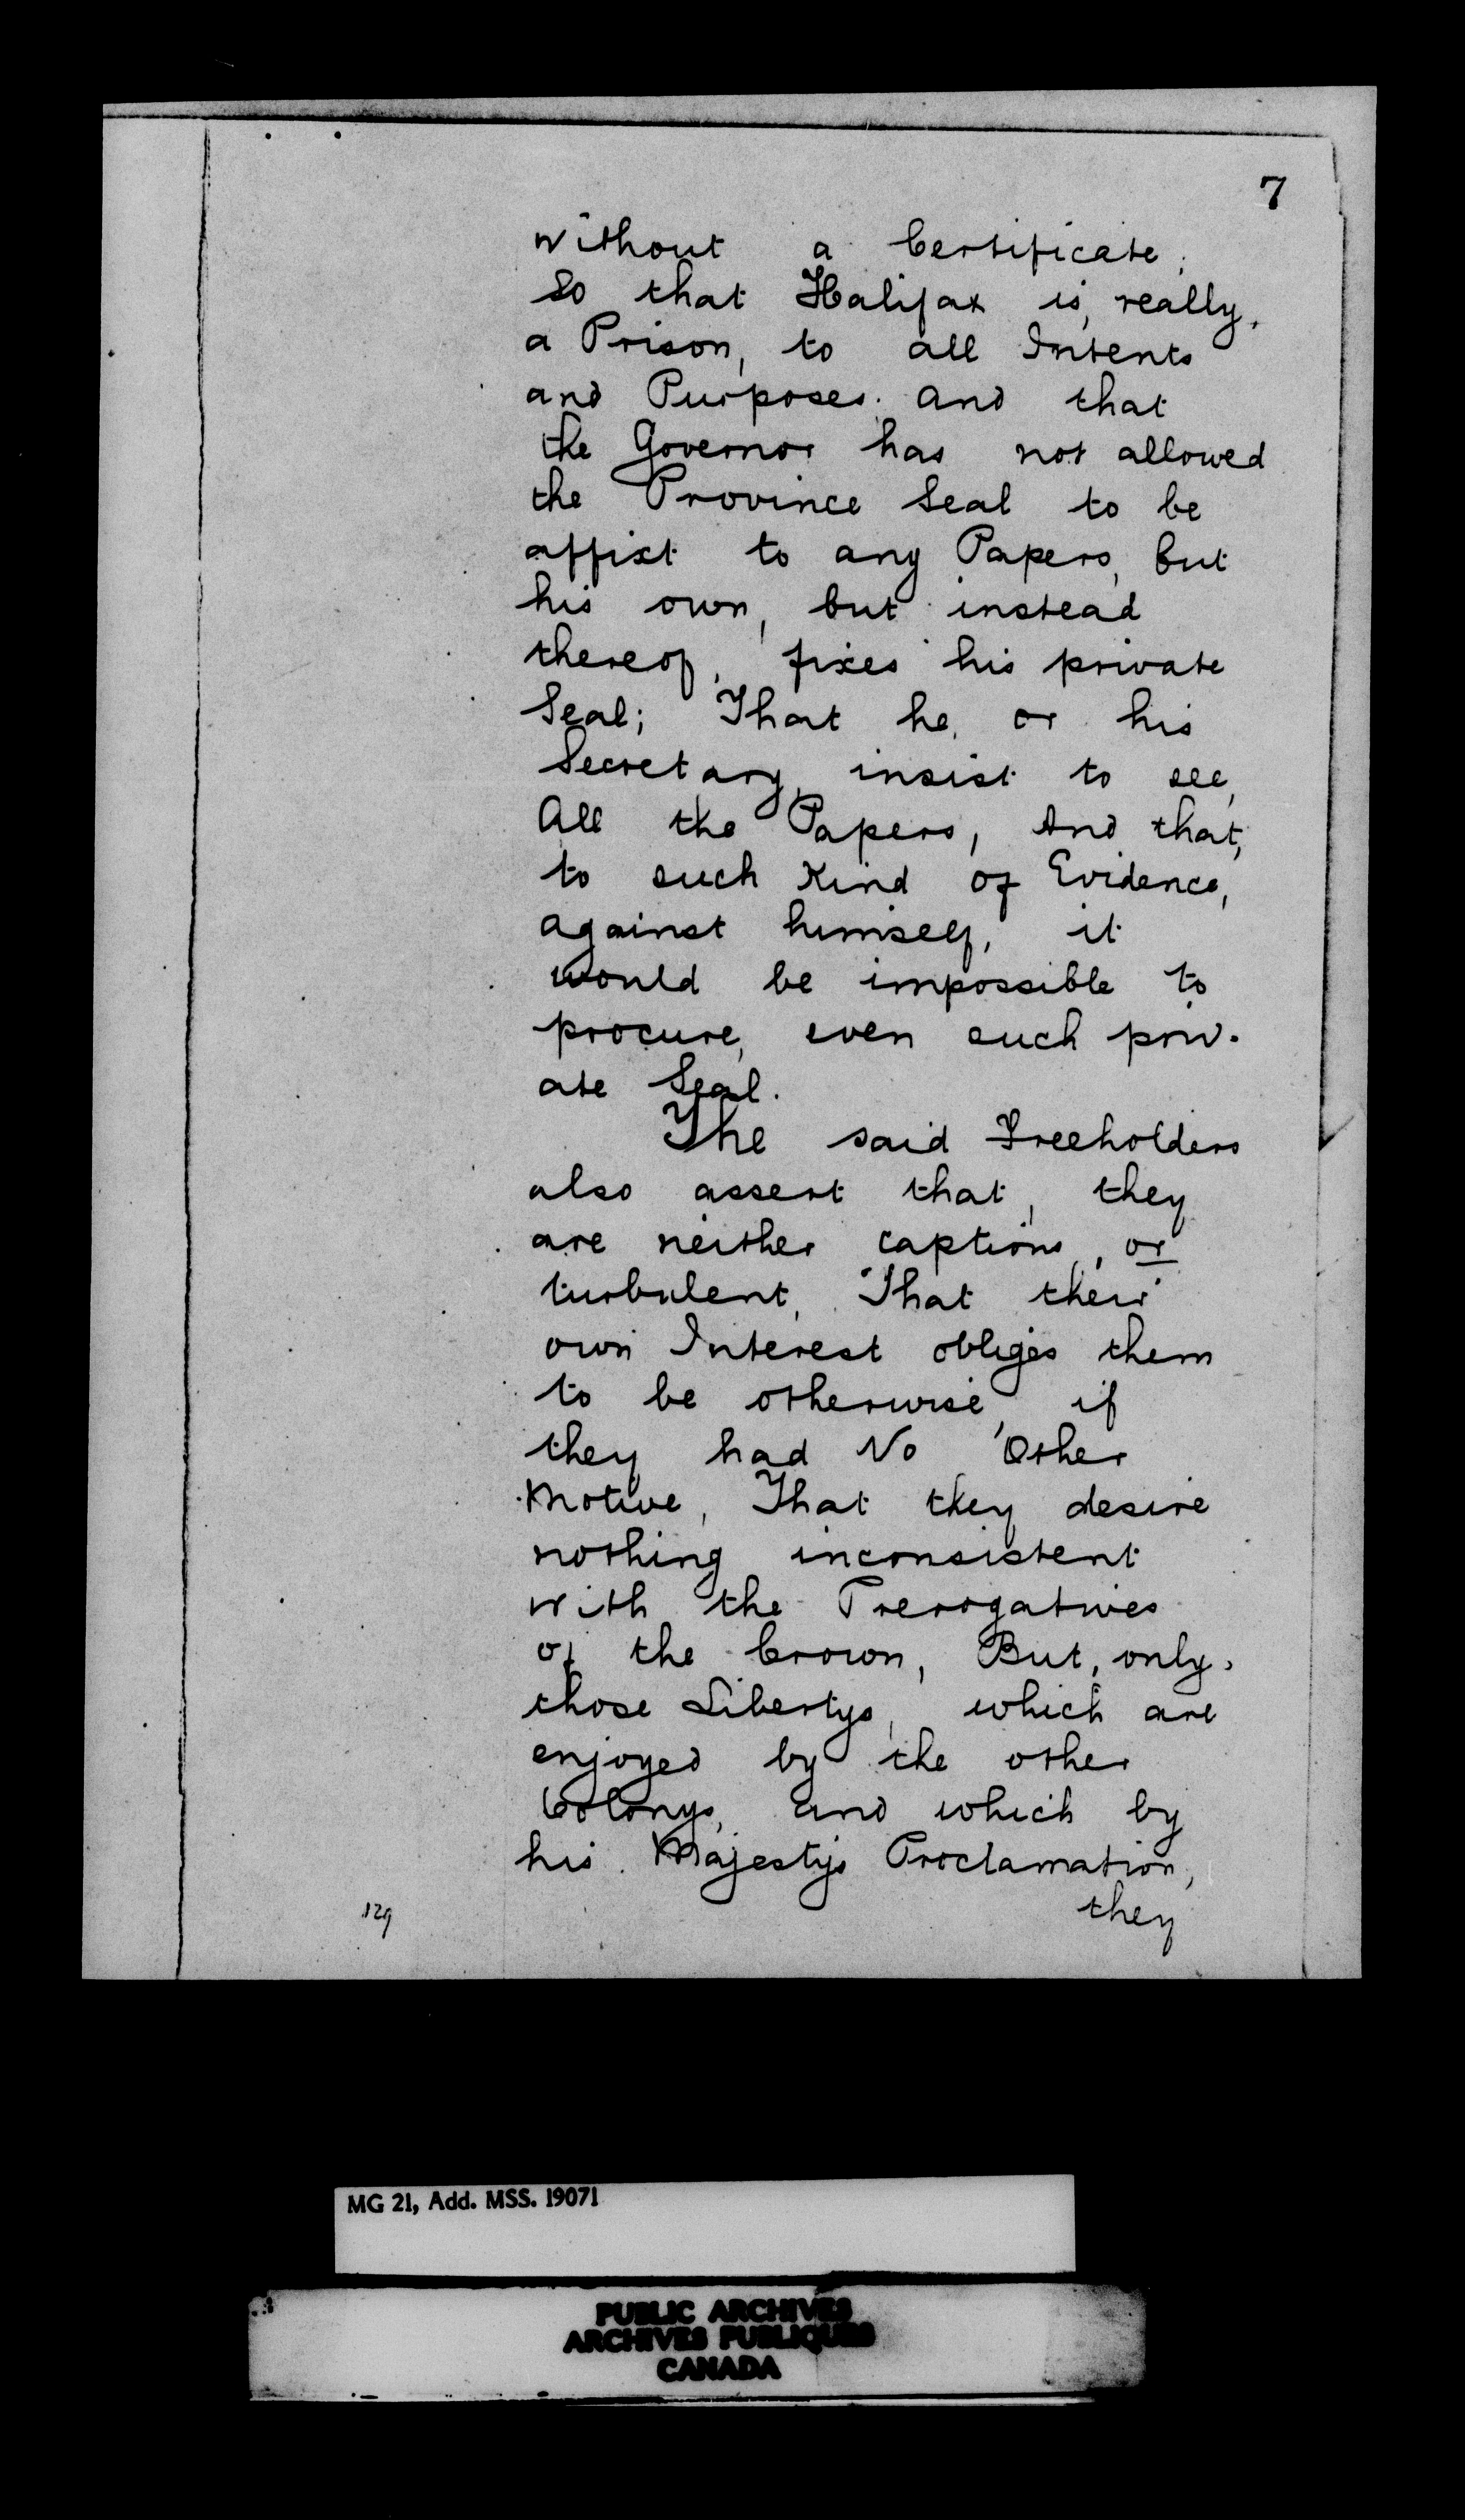 7
without a Certificate;
so that Halifax is, really,
a Prison, to all Intents
and Purposes. and that
the Governor has not allowed
the Province Seal to be
affixt to any Papers, but
his own, but instead
thereof, fixes his private
Seal; That he, or his
Secretary, insist to see,
All the Papers, And that,
to such Kind of Evidence,
against himself, it
would be impossible to
procure, even such priv-
ate Seal.
The said Freeholders
also assert that, they
are neither captious, or
turbulent, That their
own Interest obliges them
to be otherwise, if
they had No Other
Motive, That they desire
nothing inconsistent
with the Prerogatives
of the Crown, But, only,
those Libertys, which are
enjoyed by the other
Colonys, and which by
his Majestys Proclamation,
they
129
MG 21, Add. MSS. 19071
PUBLIC ARCHIVES
ARCHIVES PUBLIQUES
CANADA